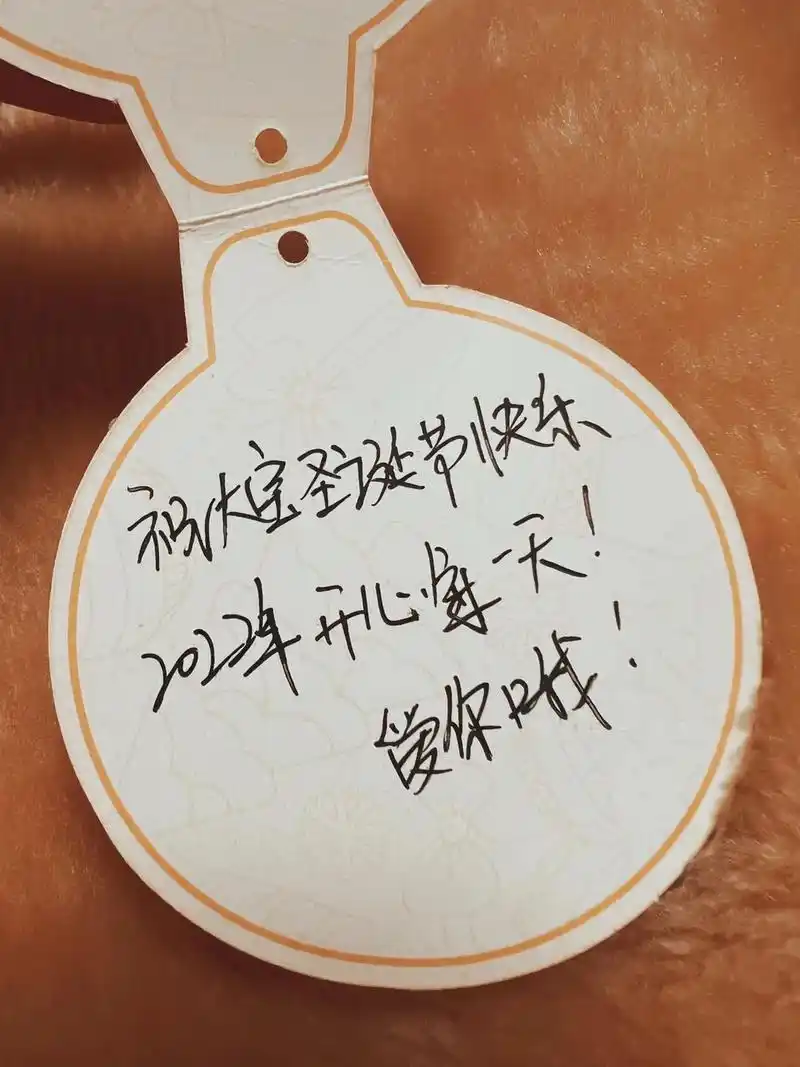 祝宝圣诞节快乐
2022年 开心每一天!
爱你哦!